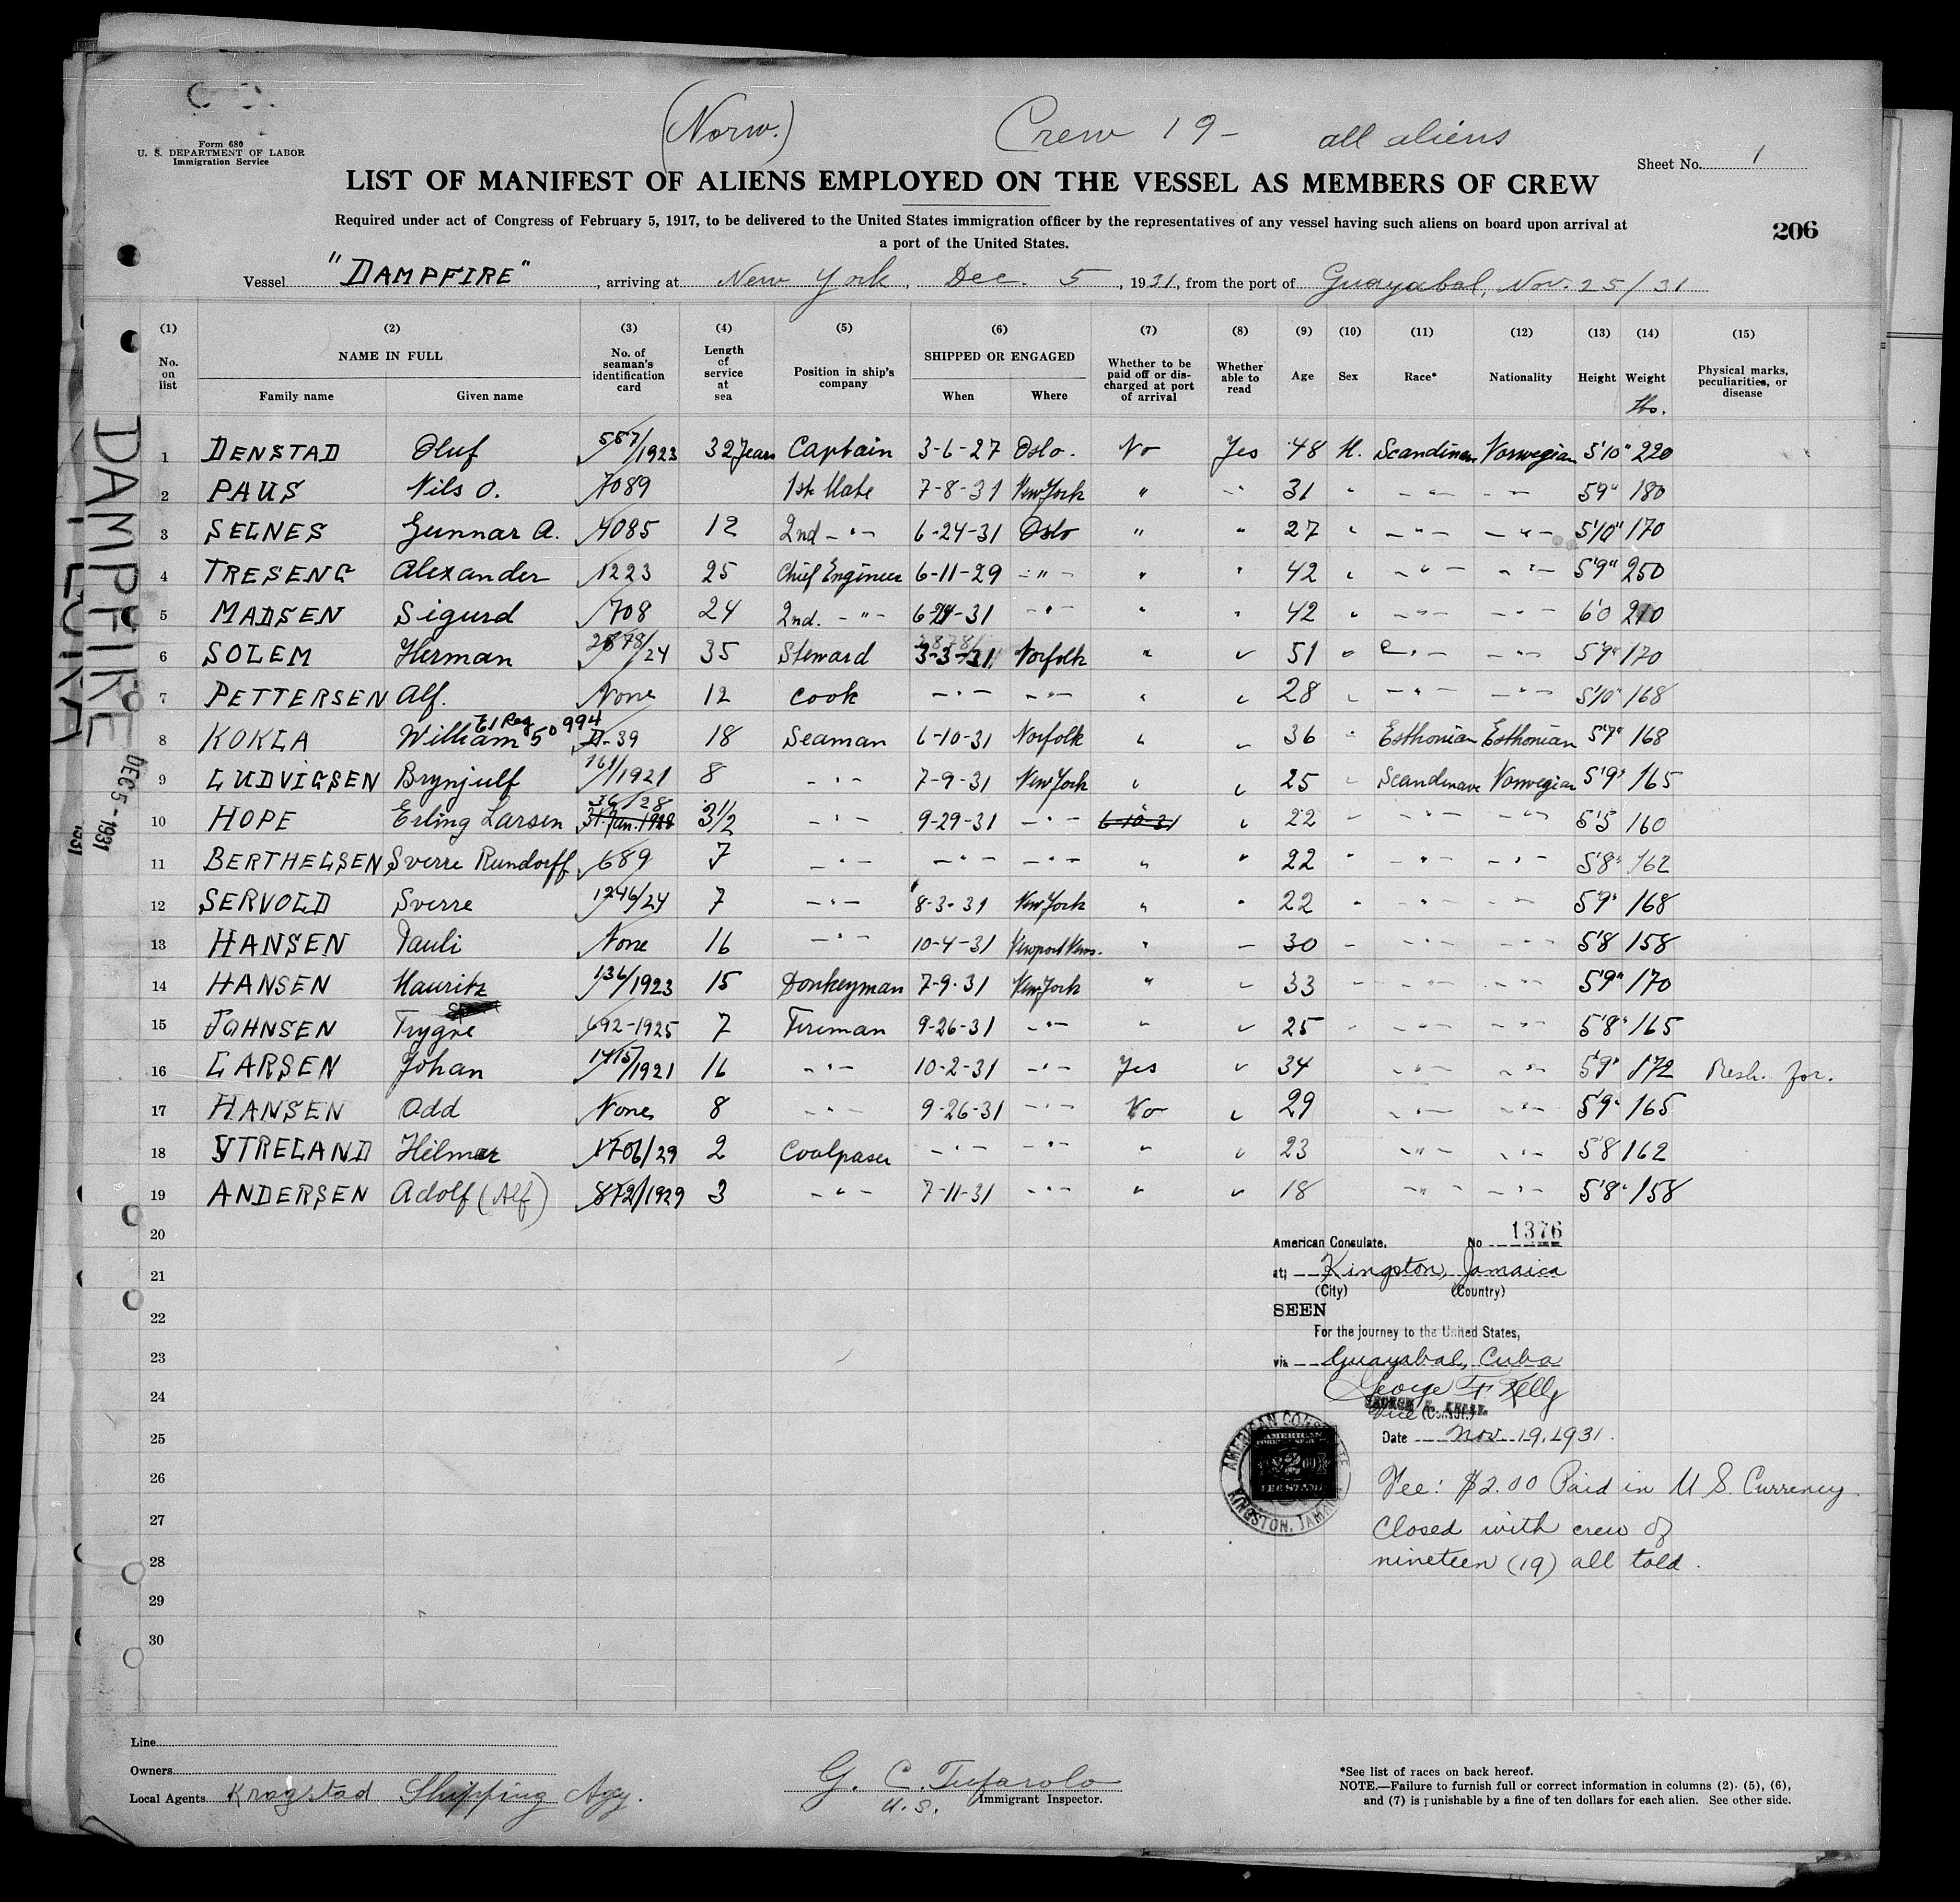 (Norw.) Crew 19 - all aliens
Form 680
U. S. DEPARTMENT OF LABOR
Immigration Service
Sheet No. 1
LIST OF MANIFEST OF ALIENS EMPLOYED ON THE VESSEL AS MEMBERS OF CREW
Required under act of Congress of February 5, 1917, to be delivered to the United States immigration officer by the representatives of any vessel having such aliens on board upon arrival at
a port of the United States.
206
Vessel "DAMPFIRE", arriving at New York, Dec. 5, 1931, from the port of Guayabal, Nov. 25/31
(1) (2) (3) (4) (5) (6) (7) (8) (9) (10) (11) (12) (13) (14) (15)
No. on list NAME IN FULL Family name Given name No. of seaman's identification card Length of service at sea Position in ship's company SHIPPED OR ENGAGED When Where Whether to be paid off or discharged at port of arrival Whether able to read Age Sex Race* Nationality Height Weight lbs. Physical marks, peculiarities, or disease
1 DENSTAD Oluf 557/1923 32 Years Captain 3-6-27 Oslo. No Yes 48 M. Scandinav Norwegian 5'10" 220
2 PAUS Nils O. 7089 1st Mate 7-8-31 New York " -"- 31 " -"- -"- 5'9" 180
3 SELNES Gunnar A. 4085 12 2nd -"- 6-24-31 Oslo " " 27 " -"- -"- 5'10" 170
4 TRESENG Alexander 1223 25 Chief Engineer 6-11-29 -"- " " 42 " -"- -"- 5'9" 250
5 MADSEN Sigurd 708 24 2nd. -"- 6-24-31 -"- " " 42 " -"- -"- 6'0 210
6 SOLEM Herman 2878/24 35 Steward 3-3-31 Norfolk " " 51 " -"- -"- 5'9" 170
7 PETTERSEN Alf. None 12 cook -"- -"- " " 28 " -"- -"- 5'10" 168
8 KOKLA William D-39 18 Seaman 6-10-31 Norfolk " " 36 " Esthonian Esthonian 5'7" 168
9 LUDVIGSEN Brynjulf 161/1921 8 -"- 7-9-31 New York " " 25 " Scandinav Norwegian 5'9" 165
10 HOPE Erling Larsen 36/28 3 1/2 -"- 9-29-31 -"- 6-10-31 " 22 " -"- -"- 5'5 160
11 BERTHELSEN Sverre Rundorff 689 7 -"- -"- -"- " " 22 " -"- -"- 5'8" 162
12 SERVOLD Sverre 1246/24 7 -"- 8-3-31 New York " " 22 " -"- -"- 5'9" 168
13 HANSEN Pauli None 16 -"- 10-4-31 Newport News. " " 30 " -"- -"- 5'8 158
14 HANSEN Mauritz 136/1923 15 Donkeyman 7-9-31 New York " " 33 " -"- -"- 5'9" 170
15 JOHNSEN Trygve 692-1925 7 Fireman 9-26-31 -"- " " 25 " -"- -"- 5'8" 165
16 LARSEN Johan 1715/1921 16 -"- 10-2-31 -"- Yes " 34 -"- -"- 5'9" 172 Resh. for.
17 HANSEN Odd None 8 -"- 9-26-31 -"- No " 29 -"- -"- 5'9" 165
18 YTRELAND Hilmar 1706/29 2 Coalpaser -"- -"- " " 23 -"- -"- 5'8 162
19 ANDERSEN Adolf (Alf) 872/1929 3 -"- 7-11-31 -"- " " 18 -"- -"- 5'8" 158
20
21
22
23
24
25
26
27
28
29
30
American Consulate. No 1376
at; Kingston, Jamaica
(City) (Country)
SEEN
For the journey to the United States,
via Guayabal, Cuba
George F. Kelly
GEORGE F. KELLY.
Vice (Consul.)
Date Nov. 19, 1931.
AMERICAN CONSULATE
KINGSTON, JAMAICA
Fee: $2.00 Paid in U S. Currency.
Closed with crew of
nineteen (19) all told.
DAMPFIRE
DEC 5 - 1931
1931
Line
Owners
Local Agents Kragstad Shipping Agy.
G. C. Tufarolo
U.S. Immigrant Inspector.
*See list of races on back hereof.
NOTE.—Failure to furnish full or correct information in columns (2), (5), (6),
and (7) is punishable by a fine of ten dollars for each alien. See other side.